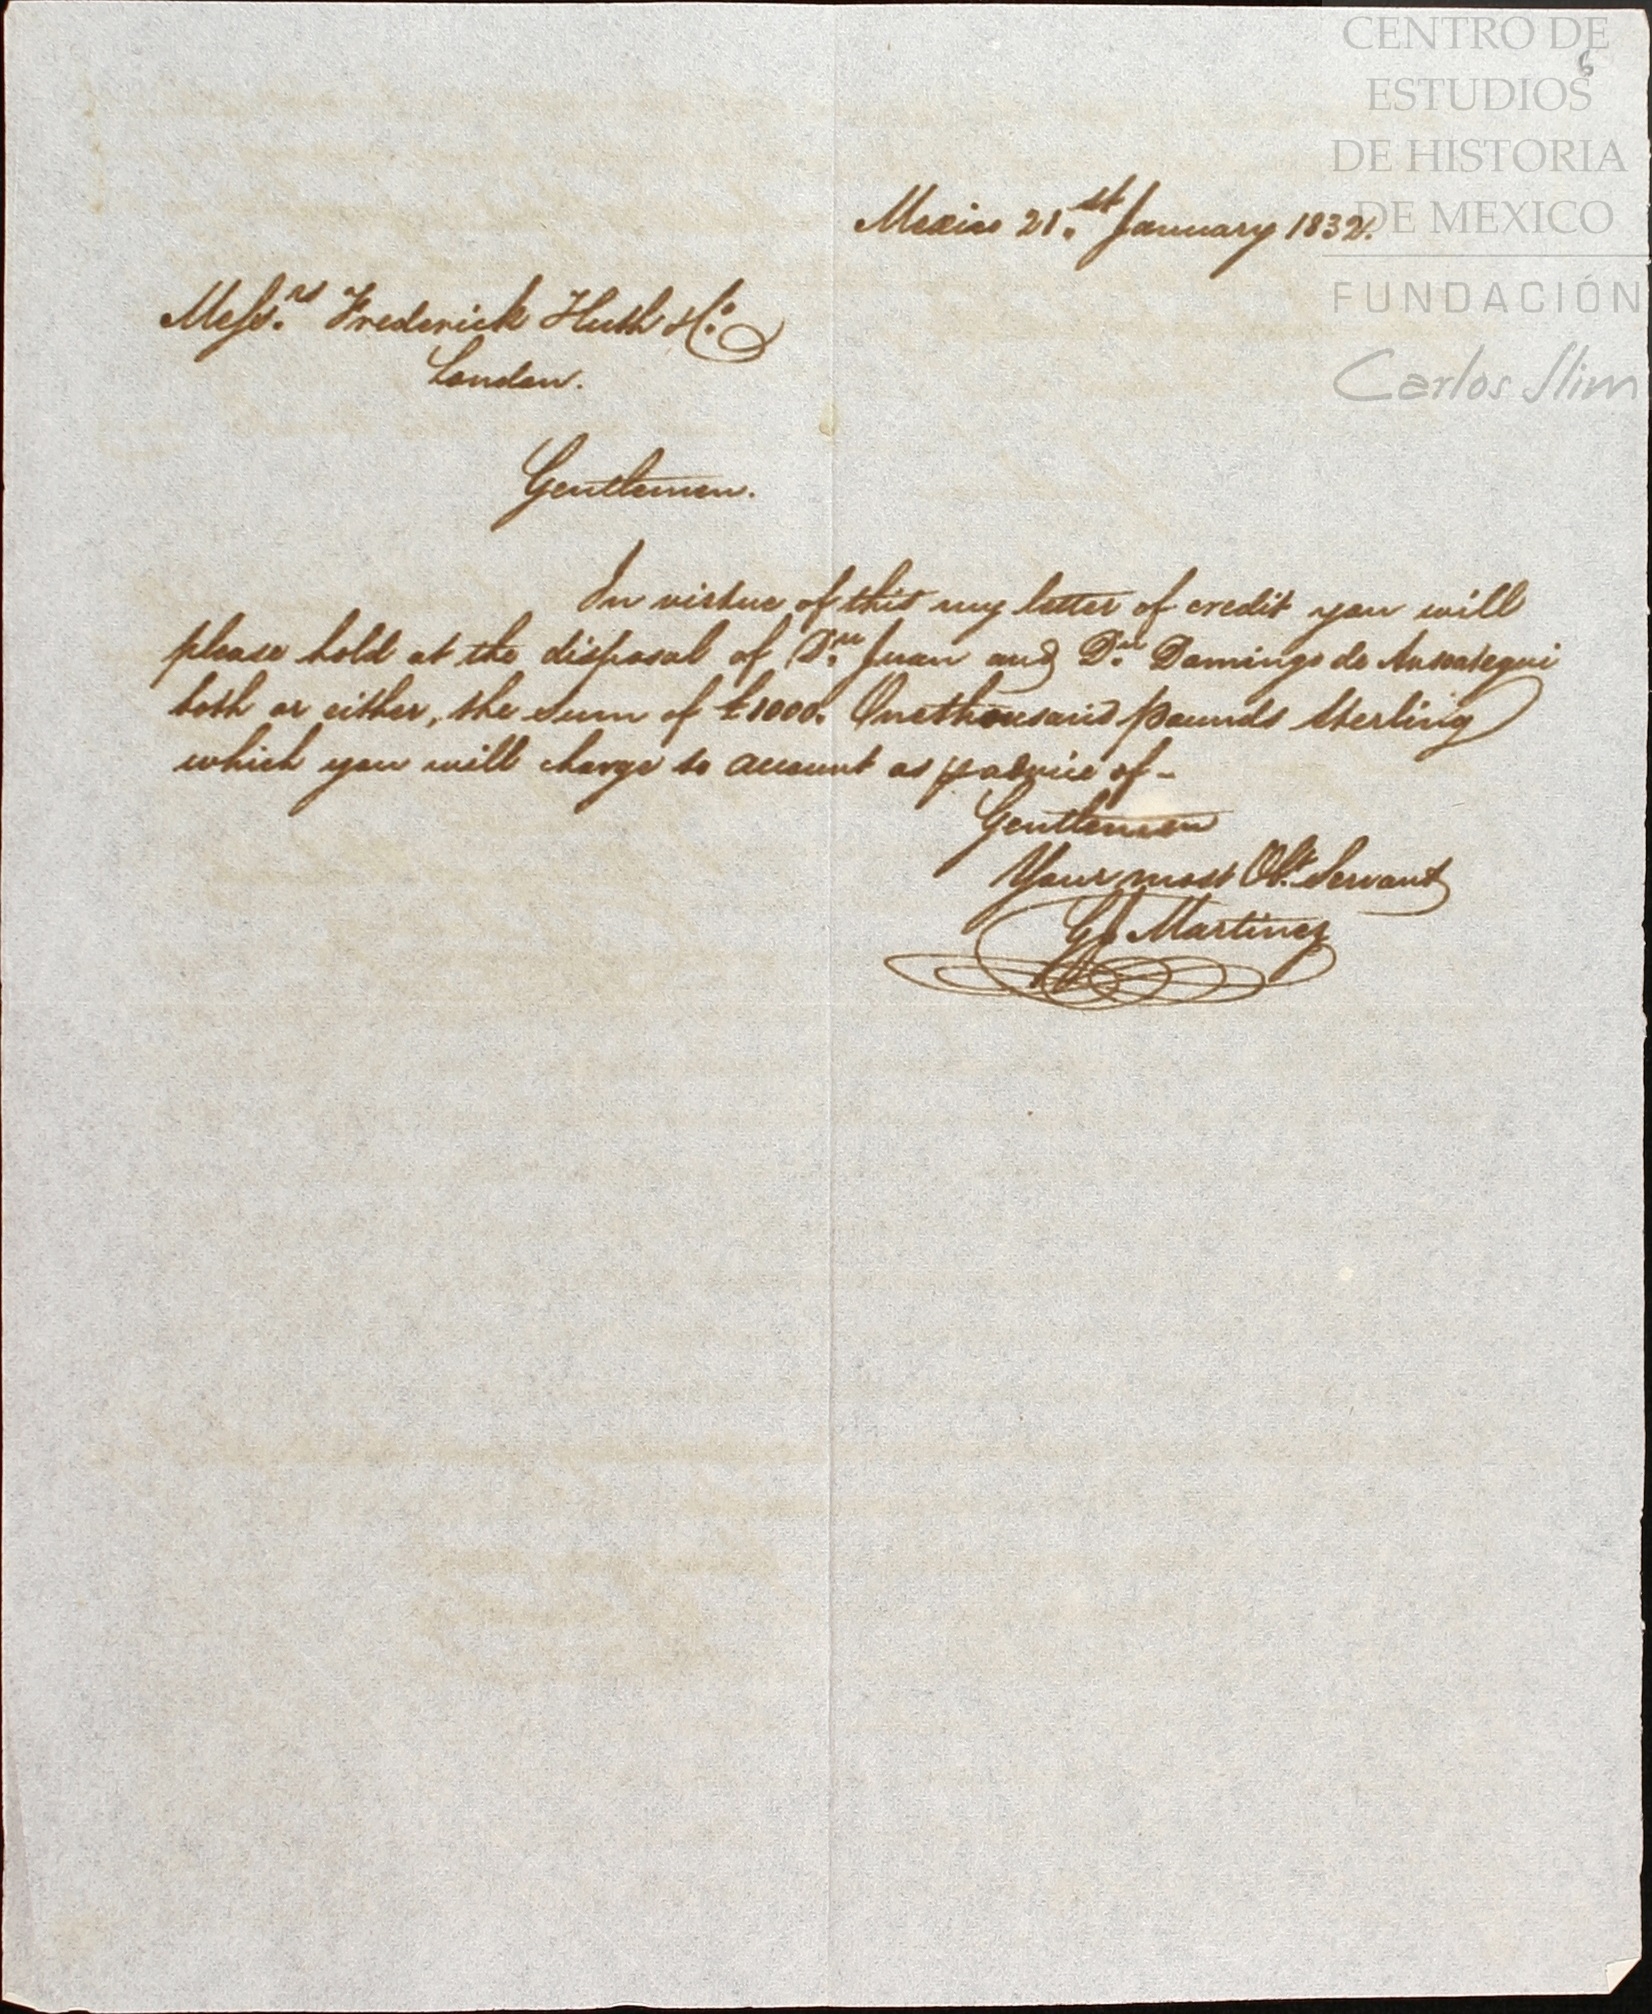 CENTRO DE
ESTUDIOS
DE HISTORIA
DE MEXICO
FUNDACIÓN
Carlos Slim
6
Mexico 21.st January 1832.
Messrs. Frederick Huth &Co.
London.
Gentlemen.
In virtue of this my letter of credit you will
please hold at the disposal of Dn. Juan and Dn. Domingo de Ansoategui
both or either, the sum of £1000. One thousand pounds Sterling
which you will charge to account as p advice of-
Gentlemen
Your most Obt. Servant
Martinez